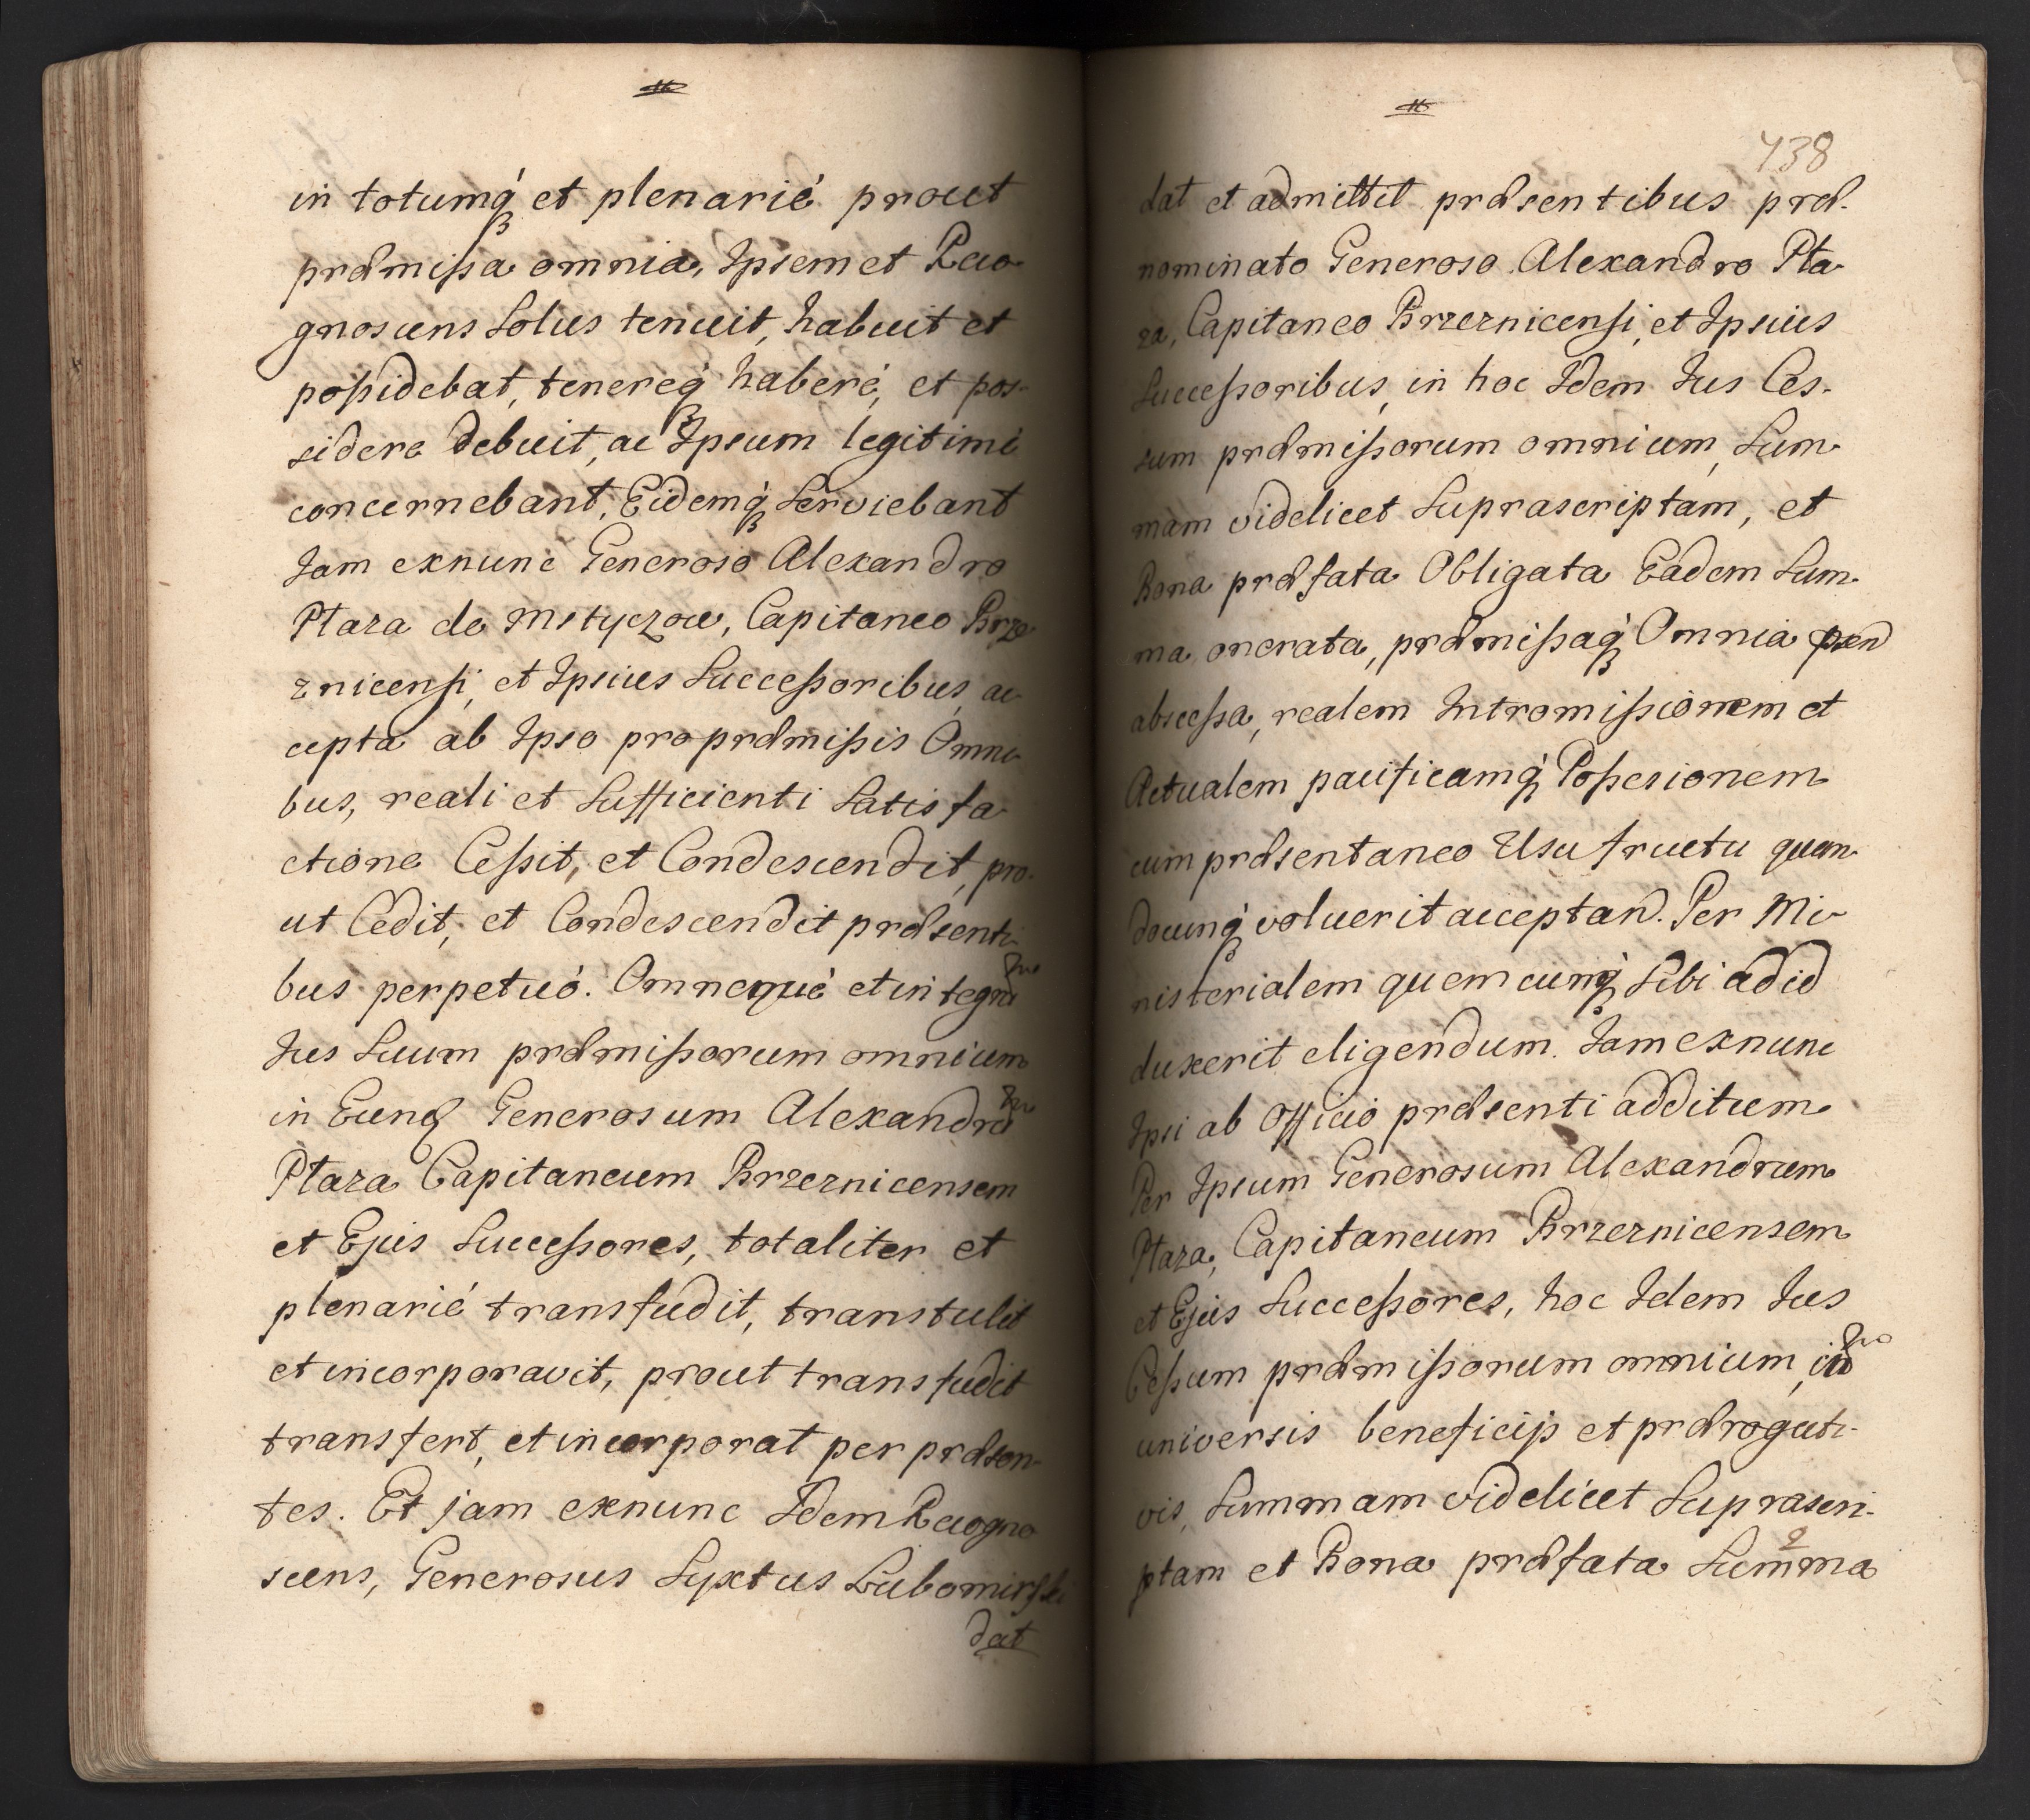 in totumq́ et plenarié prout
præmissa omnia, Ipsemet Reco-
gnoscens Solus tenuit, habuit et
possidebat, tenereq́ haberé, et pos-
sidere debuit, ac Ipsum legitimé
concernebant, Eidemq́ Serviebant
Jam exnunc Generoso Alexandro
Płaza de Mstyczow, Capitaneo Brze-
znicensi, et Ipsius Successoribus, ac-
cepta ab Ipso pro præmissis Omni-
bus, reali et Sufficienti Satisfa-
ctione Cessit, et Condescendit, pro-
ut Cedit, et Condescendit præsenti-
bus perpetuó. Omneque et integrū
Jus Suum præmissorum omnium
in Eunq Generosum Alexandrū
Płaza Capitaneum Brzeznicensem
et Ejus Successores, totaliter et
plenarié transfudit, transtulit
et incorporavit, prout transfudit
transfert, et incorporat per præsen-
tes. Et jam exnunc Idem Recogno-
scens, Generosus Syxtus Lubomirski
dat
738
dat et admittit præsentibus præ-
nominato Generoso Alexandro Pła-
za, Capitaneo Brzeznicensi, et Ipsius
Successoribus, in hoc Idem Jus Ces-
sum præmissorum omnium, Sum-
mam videlicet Suprascriptam, et
Bona præfata Obligata Eadem Sum-
ma onerata, præmissaq́ Omnia
abscessa, realem Intromissionem et
Actualem pacificamq́ Possesionem
cum præsentaneo Usufructu quan-
docunq́ voluerit acceptan. Per Mi-
nisterialem quemcunq́ Sibi ad id
duxerit eligendum. Jam exnunc
Ipsi ab Officio præsenti additum
Per Ipsum Generosum Alexandrum
Płaza, Capitaneum Brzeznicensem
et Ejus Successores, hoc Idem Jus
Cessum præmissorum omnium, cū
universis beneficijs et prærogati-
vis, Summam videlicet Suprascri-
ptam et Bona præfata Summa